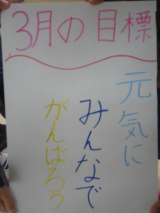 3月の目標
元気に
みんなで
がんばろう